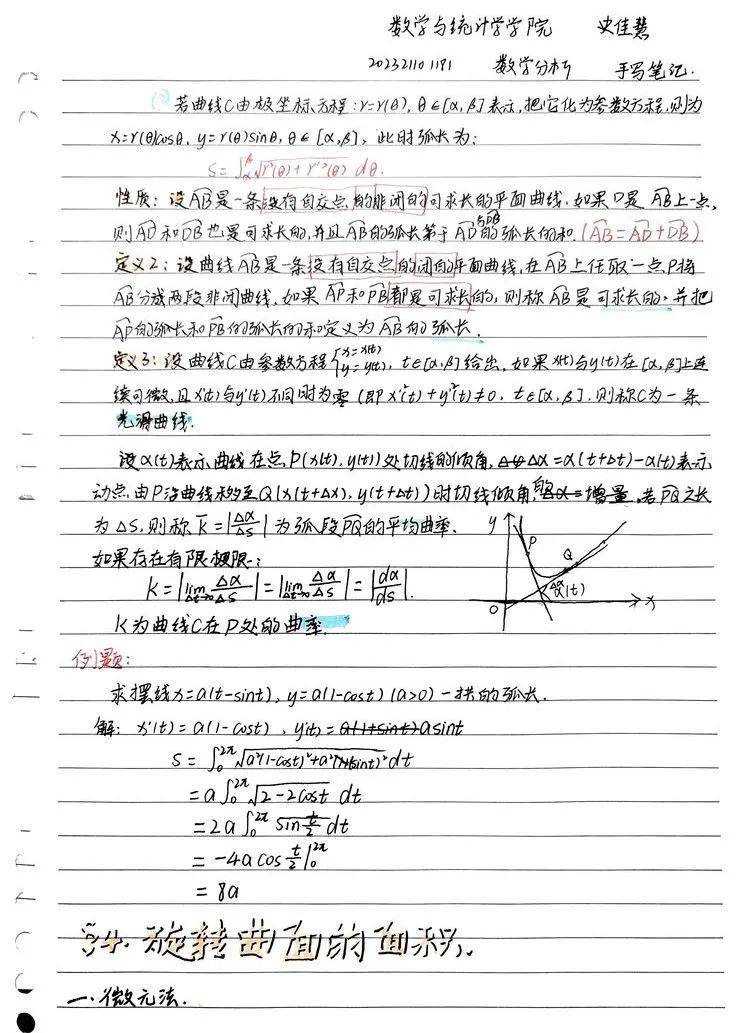 数学与统计学学院 史佳慧
202321101191 数学分析 手写笔记.
(3) 若曲线C由极坐标方程:r=r(θ), θ∈[α,β]表示,把它化为参数方程,则为
x=r(θ)cosθ, y=r(θ)sinθ, θ∈[α,β], 此时弧长为:
S=∫_α^β √(r²(θ)+r'²(θ)) dθ.
性质: 设A͡B是一条没有自交点的非闭的可求长的平面曲线.如果D是A͡B上一点,
则A͡D和D͡B也是可求长的,并且A͡B的弧长等于A͡D与D͡B的弧长的和.(A͡B=A͡D+D͡B)
定义2: 设曲线A͡B是一条没有自交点的闭的平面曲线,在A͡B上任取一点P将
A͡B分成两段非闭曲线,如果A͡P和P͡B都是可求长的,则称A͡B是可求长的.并把
A͡P的弧长和P͡B的弧长的和定义为A͡B的弧长.
定义3: 设曲线C由参数方程{x=x(t) y=y(t), t∈[α,β]给出,如果x(t)与y(t)在[α,β]上连
续可微,且x'(t)与y'(t)不同时为零(即x'²(t)+y'²(t)≠0, t∈[α,β].则称C为一条
光滑曲线.
设α(t)表示曲线在点P(x(t),y(t))处切线的倾角, Δα=α(t+Δt)-α(t)表示
动点由P沿曲线移至Q(x(t+Δx),y(t+Δt))时切线倾角的增量.若P͡Q之长
为ΔS,则称K̄=|Δα/Δs|为弧段P͡Q的平均曲率.
如果存在有限极限:
K=|lim_{Δt→0} Δα/Δs|=|lim_{Δs→0} Δα/Δs|=|dα/ds|.
y P Q Δα α(t) O x
K为曲线C在P处的曲率.
例题:
求摆线x=a(t-sint), y=a(1-cost)(a>0)一拱的弧长.
解: x'(t)=a(1-cost), y'(t)=a(1+sint)asint
S=∫_0^{2π} √(a²(1-cost)²+a²(sint)²) dt
=a∫_0^{2π} √(2-2cost) dt
=2a∫_0^{2π} sin t/2 dt
=-4a cos t/2 |_0^{2π}
=8a
§4.旋转曲面的面积.
一.微元法.